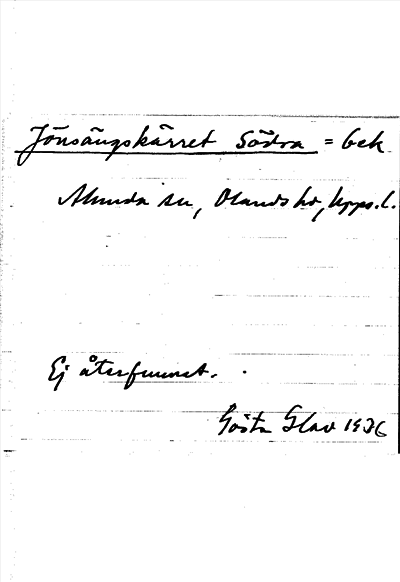 Jönsängskärret Södra = bek
Almunda sn, Olands hd, Upps. l.
Ej återfunnet.
Gösta Glav 1936